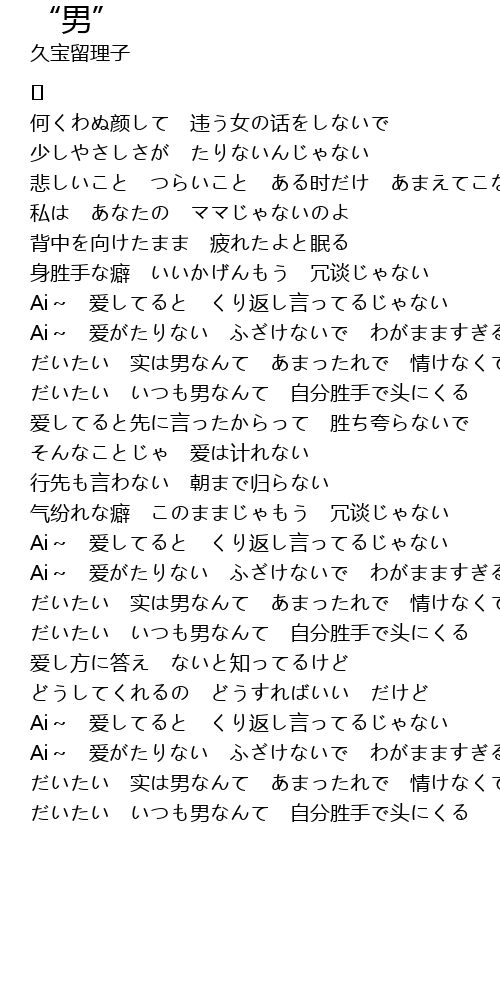 “男”
久宝留理子
[]
何くわぬ颜して　违う女の话をしないで
少しやさしさが　たりないんじゃない
悲しいこと　つらいこと　ある时だけ　あまえてこな
私は　あなたの　ママじゃないのよ
背中を向けたまま　疲れたよと眠る
身胜手な癖　いいかげんもう　冗谈じゃない
Ai～　爱してると　くり返し言ってるじゃない
Ai～　爱がたりない　ふざけないで　わがまますぎる
だいたい　实は男なんて　あまったれで　情けなくて
だいたい　いつも男なんて　自分胜手で头にくる
爱してると先に言ったからって　胜ち夸らないで
そんなことじゃ　爱は计れない
行先も言わない　朝まで归らない
气纷れな癖　このままじゃもう　冗谈じゃない
Ai～　爱してると　くり返し言ってるじゃない
Ai～　爱がたりない　ふざけないで　わがまますぎる
だいたい　实は男なんて　あまったれで　情けなくて
だいたい　いつも男なんて　自分胜手で头にくる
爱し方に答え　ないと知ってるけど
どうしてくれるの　どうすればいい　だけど
Ai～　爱してると　くり返し言ってるじゃない
Ai～　爱がたりない　ふざけないで　わがまますぎる
だいたい　实は男なんて　あまったれで　情けなくて
だいたい　いつも男なんて　自分胜手で头にくる